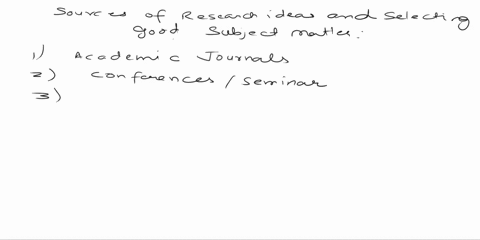 Sources of Research ideas and Selecting
good Subject matter:
1) Academic Journals
2) Conferences / Seminar
3)